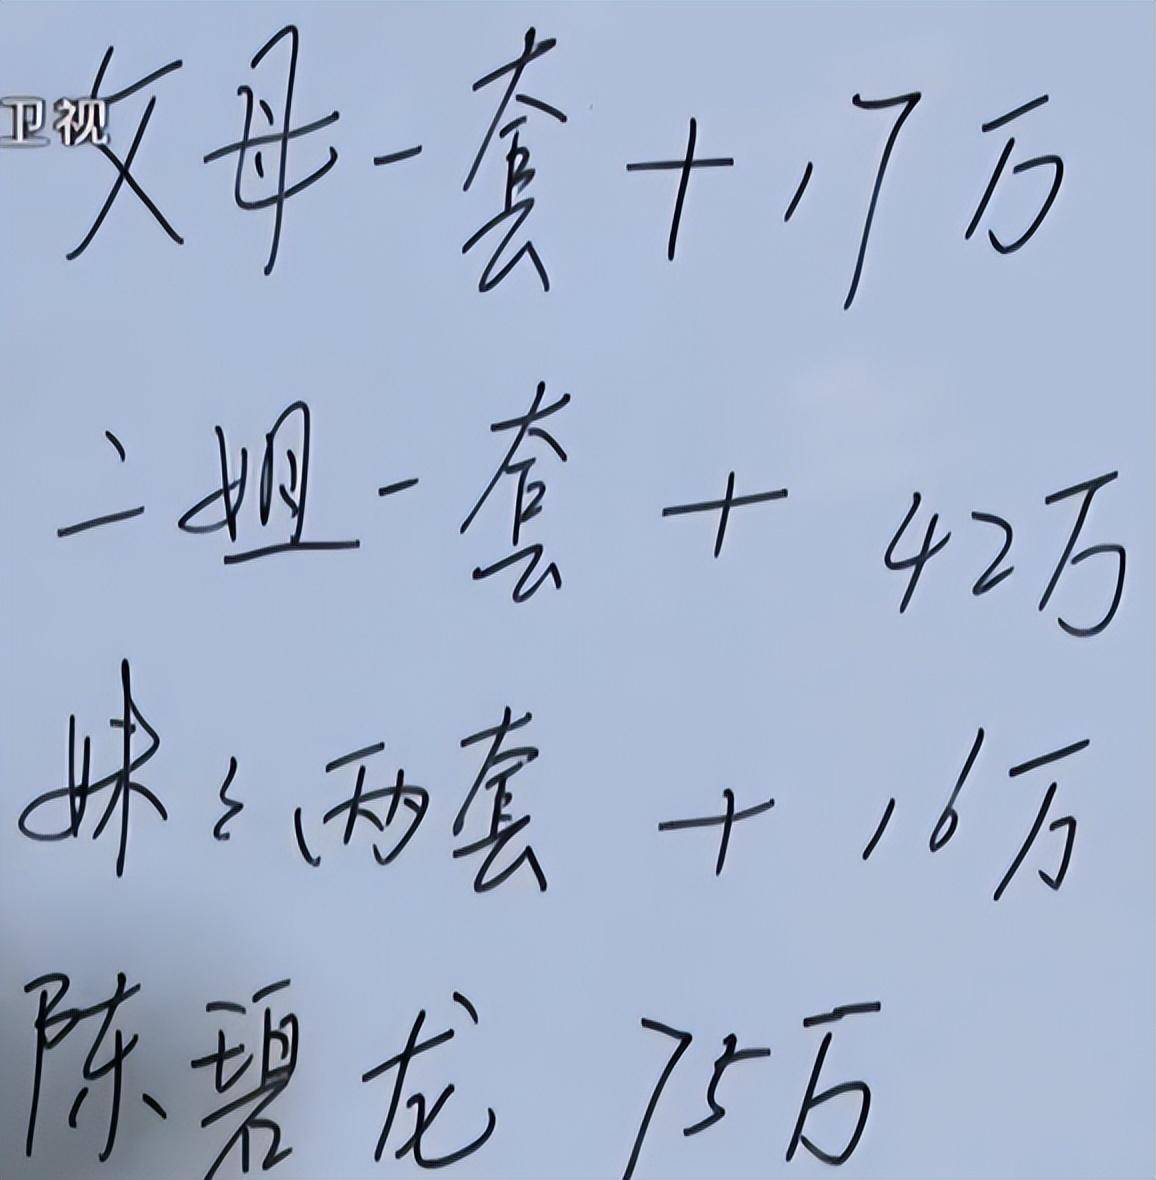 卫视
父母一套+17万
二姐一套+42万
妹妹两套+16万
陈碧龙 75万